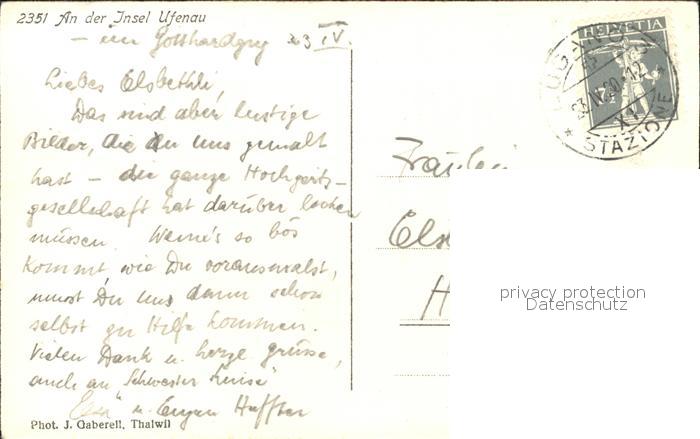 2351 An der Insel Ufenau
– im Gotthardzug 23 IV.
Liebes Elsbethli,
Das sind aber lustige
Bilder, die du uns gemalt
hast – die ganze Hochzeits-
gesellschaft hat darüber lachen
müssen. Wenn's so bös
kommt, wie Du voraussiehst,
musst Du uns dann schon
selbst zu Hilfe kommen.
Vielen Dank u. herzl. grüsse,
auch an "Schwester Luise"
u. Eugen Haffter
Phot. J. Gaberell, Thalwil
HELVETIA
7½
LUGANO
23.IV.20.-12
XI
* STAZIONE *
Fräulein
Els
H
privacy protection
Datenschutz